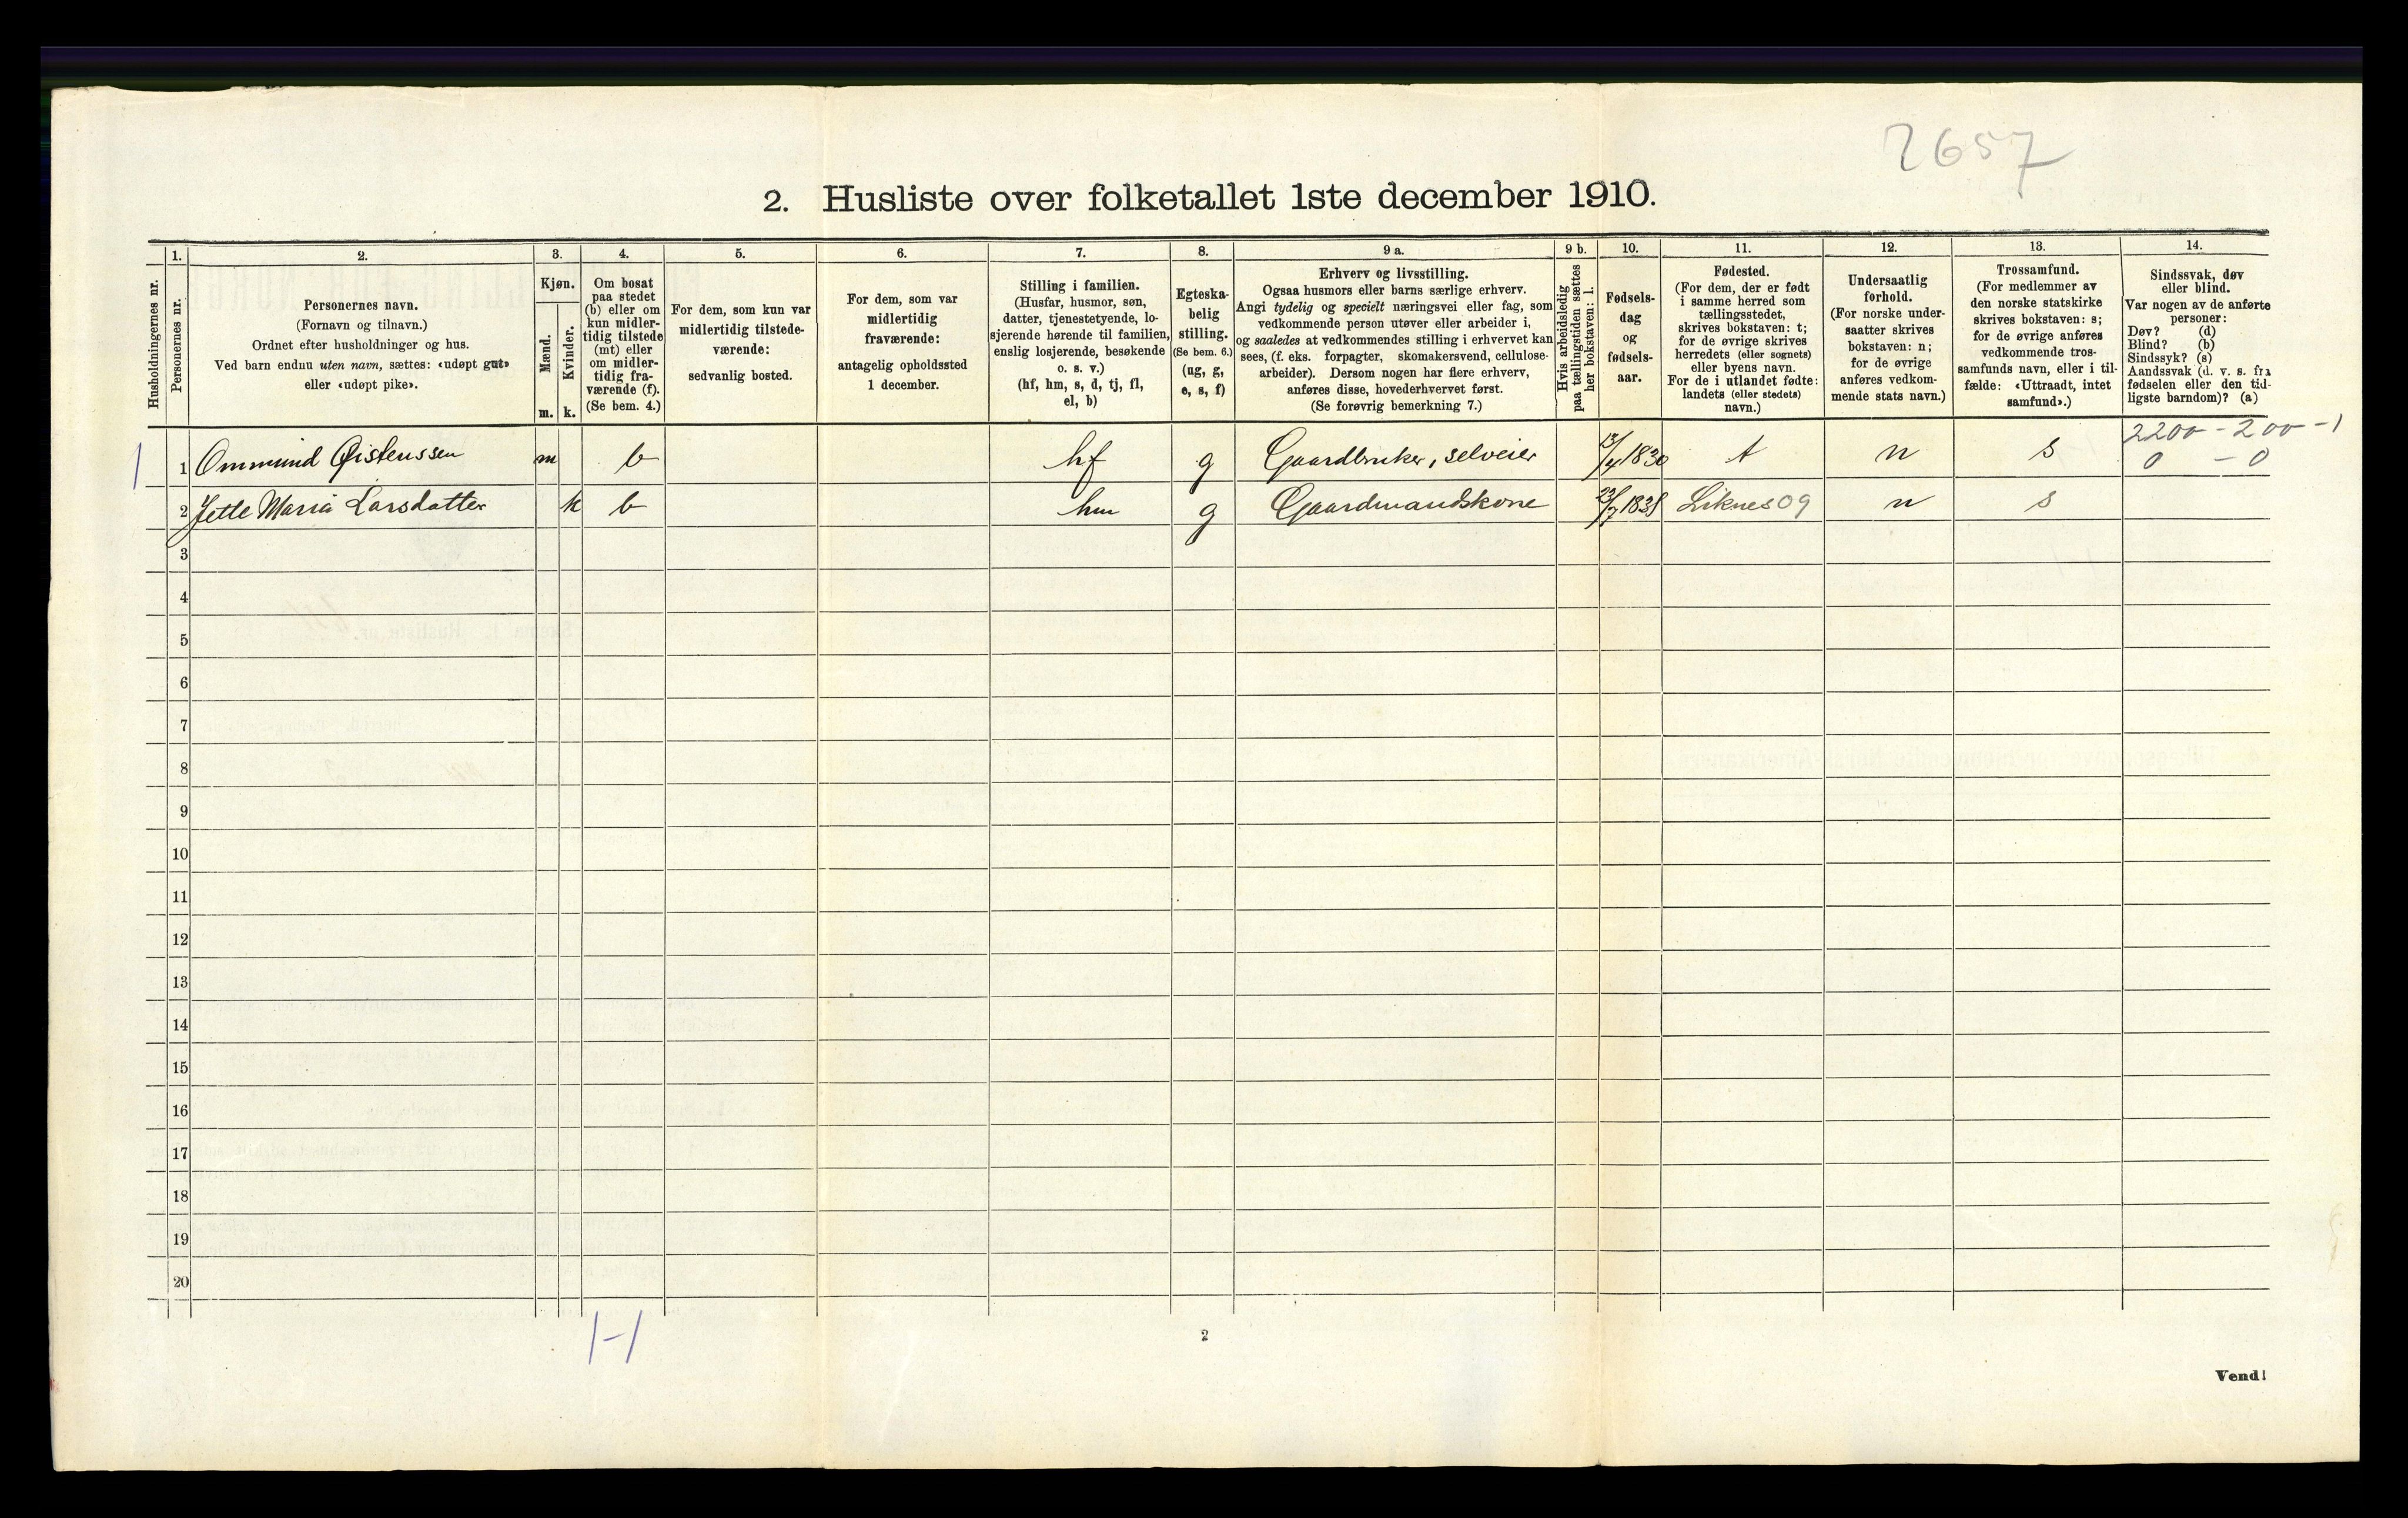 2657
2. Husliste over folketallet 1ste december 1910.
Husholdningernes nr.
1.
Personernes nr.
2.
Personernes navn.
(Fornavn og tilnavn.)
Ordnet efter husholdninger og hus.
Ved barn endnu uten navn, sættes: «udøpt gut»
eller «udøpt pike».
3.
Kjøn.
Mænd.
Kvinder.
m. k.
4.
Om bosat
paa stedet
(b) eller om
kun midler-
tidig tilstede
(mt) eller
om midler-
tidig fra-
værende (f).
(Se bem. 4.)
5.
For dem, som kun var
midlertidig tilstede-
værende:
sedvanlig bosted.
6.
For dem, som var
midlertidig
fraværende:
antagelig opholdssted
1 december.
7.
Stilling i familien.
(Husfar, husmor, søn,
datter, tjenestetyende, lo-
sjerende hørende til familien,
enslig losjerende, besøkende
o. s. v.)
(hf, hm, s, d, tj, fl,
el, b)
8.
Egteska-
belig
stilling.
(Se bem. 6.)
(ug, g,
e, s, f)
9 a.
Erhverv og livsstilling.
Ogsaa husmors eller barns særlige erhverv.
Angi tydelig og specielt næringsvei eller fag, som
vedkommende person utøver eller arbeider i,
og saaledes at vedkommendes stilling i erhvervet kan
sees, (f. eks. forpagter, skomakersvend, cellulose-
arbeider). Dersom nogen har flere erhverv,
anføres disse, hovederhvervet først.
(Se forøvrig bemerkning 7.)
9 b.
Hvis arbeidsledig
paa tællingstiden sættes
her bokstaven: l.
10.
Fødsels-
dag
og
fødsels-
aar.
11.
Fødested.
(For dem, der er født
i samme herred som
tællingsstedet,
skrives bokstaven: t;
for de øvrige skrives
herredets (eller sognets)
eller byens navn.
For de i utlandet fødte:
landets (eller stedets)
navn.)
12.
Undersaatlig
forhold.
(For norske under-
saatter skrives
bokstaven: n;
for de øvrige
anføres vedkom-
mende stats navn.)
13.
Trossamfund.
(For medlemmer av
den norske statskirke
skrives bokstaven: s;
for de øvrige anføres
vedkommende tros-
samfunds navn, eller i til-
fælde: «Uttraadt, intet
samfund».)
14.
Sindssvak, døv
eller blind.
Var nogen av de anførte
personer:
Døv? (d)
Blind? (b)
Sindssyk? (s)
Aandssvak (d. v. s. fra
fødselen eller den tid-
ligste barndom)? (a)
2200 - 200 - 1
1 1 Ommund Øistenssen m b hf g Gaardbruker, selveier 13/4 1830 t n s 0 - 0
2 Jette Maria Larsdatter k b hm g Gaardmandskone 23/7 1838 Liknes 09 n s
3
4
5
6
7
8
9
10
11
12
13
14
15
16
17
18
19
20
1-1
2
Vend!